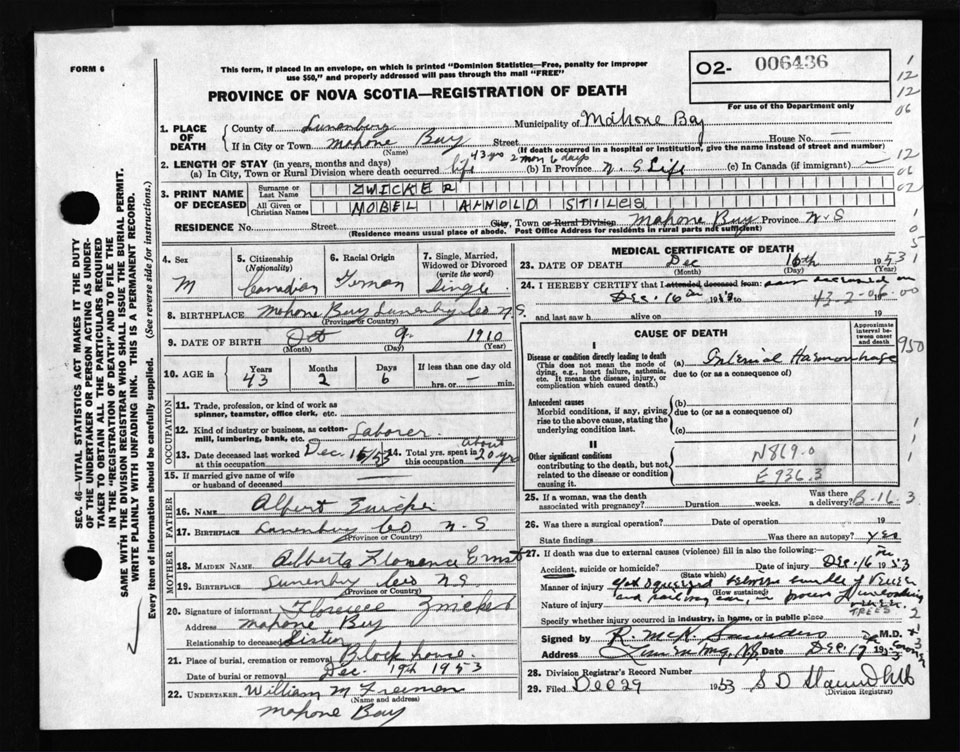 FORM 6
This form, if placed in an envelope, on which is printed "Dominion Statistics—Free, penalty for improper
use $50," and properly addressed will pass through the mail "FREE"
PROVINCE OF NOVA SCOTIA—REGISTRATION OF DEATH
02- 006436
For use of the Department only
1. PLACE OF DEATH County of Lunenburg Municipality of Mahone Bay
If in City or Town Mahone Bay Street House No. —
(Name) (If death occurred in a hospital or institution, give name instead of street and number)
2. LENGTH OF STAY (in years, months and days) 43 yrs 2 mon 6 days
(a) In City, Town or Rural Division where death occurred life (b) In Province N. S Life (c) In Canada (if immigrant) —
3. PRINT NAME OF DECEASED Surname or Last Name ZWICKER
All Given or Christian Names NOBEL ARNOLD STILES
RESIDENCE No. Street City, Town or Rural Division Mahone Bay Province N.S
(Residence means usual place of abode. Post Office Address for residents in rural parts not sufficient)
4. Sex M
5. Citizenship (Nationality) Canadian
6. Racial Origin German
7. Single, Married, Widowed or Divorced (write the word) Single
8. BIRTHPLACE Mahone Bay Lunenburg Co N.S.
(Province or Country)
9. DATE OF BIRTH Oct 9 1910
(Month) (Day) (Year)
10. AGE in Years 43 Months 2 Days 6 If less than one day old
hrs. or — min.
OCCUPATION
11. Trade, profession, or kind of work as spinner, teamster, office clerk, etc.
12. Kind of industry or business, as cotton-mill, lumbering, bank, etc. Laborer
13. Date deceased last worked at this occupation Dec 15/53 14. Total yrs. spent in this occupation about 20 yrs
15. If married give name of wife or husband of deceased
FATHER
16. NAME Albert Zwicker
17. BIRTHPLACE Lunenburg Co N.S
(Province or Country)
MOTHER
18. MAIDEN NAME Alberta Florence Ernst
19. BIRTHPLACE Lunenburg Co N.S.
(Province or Country)
20. Signature of informant Florence Zwicker
Address Mahone Bay
Relationship to deceased Sister
21. Place of burial, cremation or removal Blockhouse
Date of burial or removal Dec. 19th 1953
22. UNDERTAKER William M Freeman
(Name and address)
Mahone Bay
MEDICAL CERTIFICATE OF DEATH
23. DATE OF DEATH Dec 16th 1953
(Month) (Day) (Year)
24. I HEREBY CERTIFY that I attended deceased from: saw deceased on
Dec. 16th 19 to 43-2-06-00
and last saw h alive on 19
CAUSE OF DEATH
Approximate interval between onset and death
I
Disease or condition directly leading to death (a) Internal Haemorrhage
(This does not mean the mode of dying, e.g., heart failure, asthenia, etc. It means the disease, injury, or complication which caused death.)
due to (or as a consequence of)
Antecedent causes (b)
Morbid conditions, if any, giving rise to the above cause, stating the underlying condition last.
due to (or as a consequence of)
(c)
II
Other significant conditions N869.0
contributing to the death, but not related to the disease or condition causing it. E936.3
25. If a woman, was the death associated with pregnancy? Duration weeks. Was there a delivery? B-16.3
26. Was there a surgical operation? Date of operation 19
State findings Was there an autopsy? yes
27. If death was due to external causes (violence) fill in also the following:—
Accident, suicide or homicide? Date of injury Dec. 16 1953
(State which)
Manner of injury Got squeezed between bundle of
(How sustained)
and railway car, in process of unloading
Nature of injury
TREES
Specify whether injury occurred in industry, in home, or in public place
Signed by R. McK. Saunders M.D.
Address Date Dec. 17 1953
28. Division Registrar's Record Number
29. Filed Dec 29 1953 S D
(Division Registrar)
SEC. 46—VITAL STATISTICS ACT MAKES IT THE DUTY
OF THE UNDERTAKER OR PERSON ACTING AS UNDER-
TAKER TO OBTAIN ALL THE PARTICULARS REQUIRED
IN THE "REGISTRATION OF DEATH" AND TO FILE THE
SAME WITH THE DIVISION REGISTRAR WHO SHALL ISSUE THE BURIAL PERMIT.
WRITE PLAINLY WITH UNFADING INK. THIS IS A PERMANENT RECORD.
Every item of information should be carefully supplied. (See reverse side for instructions.)
1
12
12
06
12
06
02
950